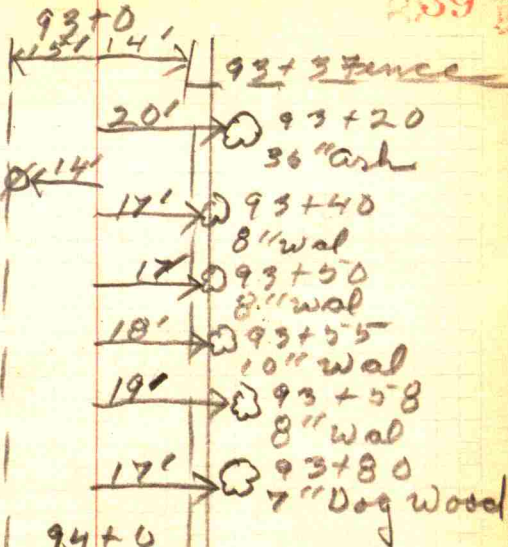 39
93+0
15' 14'
93+3 Fence
20' 93+20
36" Ash
14'
17' 93+40
8" wal
17' 93+50
8" wal
18' 93+55
10" Wal
19' 93+58
8" Wal
17' 93+80
7" Dog Wood
94+0